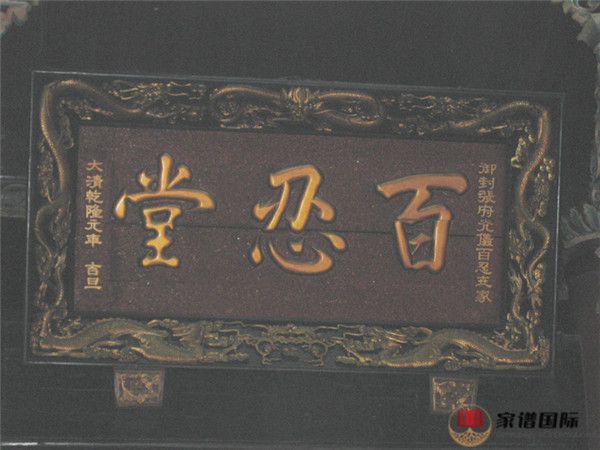 御封張府允儀百忍之家
百忍堂
大清乾隆元年 吉旦
家谱国际